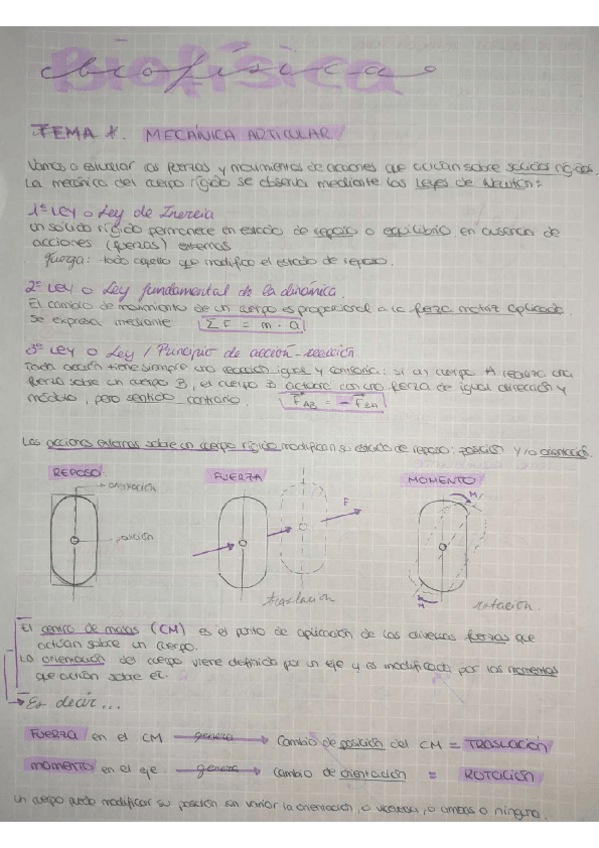 Biofísica
biofísica
TEMA 1. MECÁNICA ARTICULAR
Vamos a estudiar las fuerzas y movimientos de acciones que actúan sobre sólidos rígidos.
La mecánica del cuerpo rígido se observa mediante las Leyes de Newton:
1ª LEY o Ley de Inercia
Un sólido rígido permanece en estado de reposo o equilibrio en ausencia de
acciones (fuerzas) externas
fuerza: todo aquello que modifica el estado de reposo.
2ª LEY o Ley fundamental de la dinámica.
El cambio de movimiento de un cuerpo es proporcional a la fuerza motriz aplicada.
Se expresa mediante ΣF = m · a
3ª LEY o Ley / Principio de acción-reacción
Toda acción tiene siempre una reacción igual y contraria: si un cuerpo A una
fuerza sobre un cuerpo B, el cuerpo B actúa con una fuerza de igual dirección y
módulo, pero sentido contrario. F_AB = - F_BA
Las acciones externas sobre un cuerpo rígido modifican su estado de reposo: posición y/o orientación.
REPOSO FUERZA MOMENTO
orientación
posición
F
M
M
traslación
rotación.
El centro de masas (CM) es el punto de aplicación de las diversas fuerzas que
actúan sobre un cuerpo.
La orientación del cuerpo viene definida por un eje y es modificada por los momentos
que actúan sobre él.
Es decir...
FUERZA en el CM genera → Cambio de posición del CM = TRASLACIÓN
MOMENTO en el eje genera → cambio de orientación = ROTACIÓN
Un cuerpo puede modificar su posición sin variar la orientación, o viceversa, o ambas o ninguna.